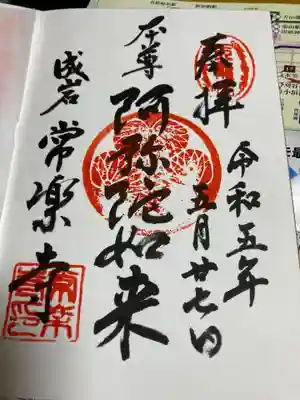 奉拝
令和五年
五月廿七日
本尊
阿弥陀如来
成岩
常楽寺